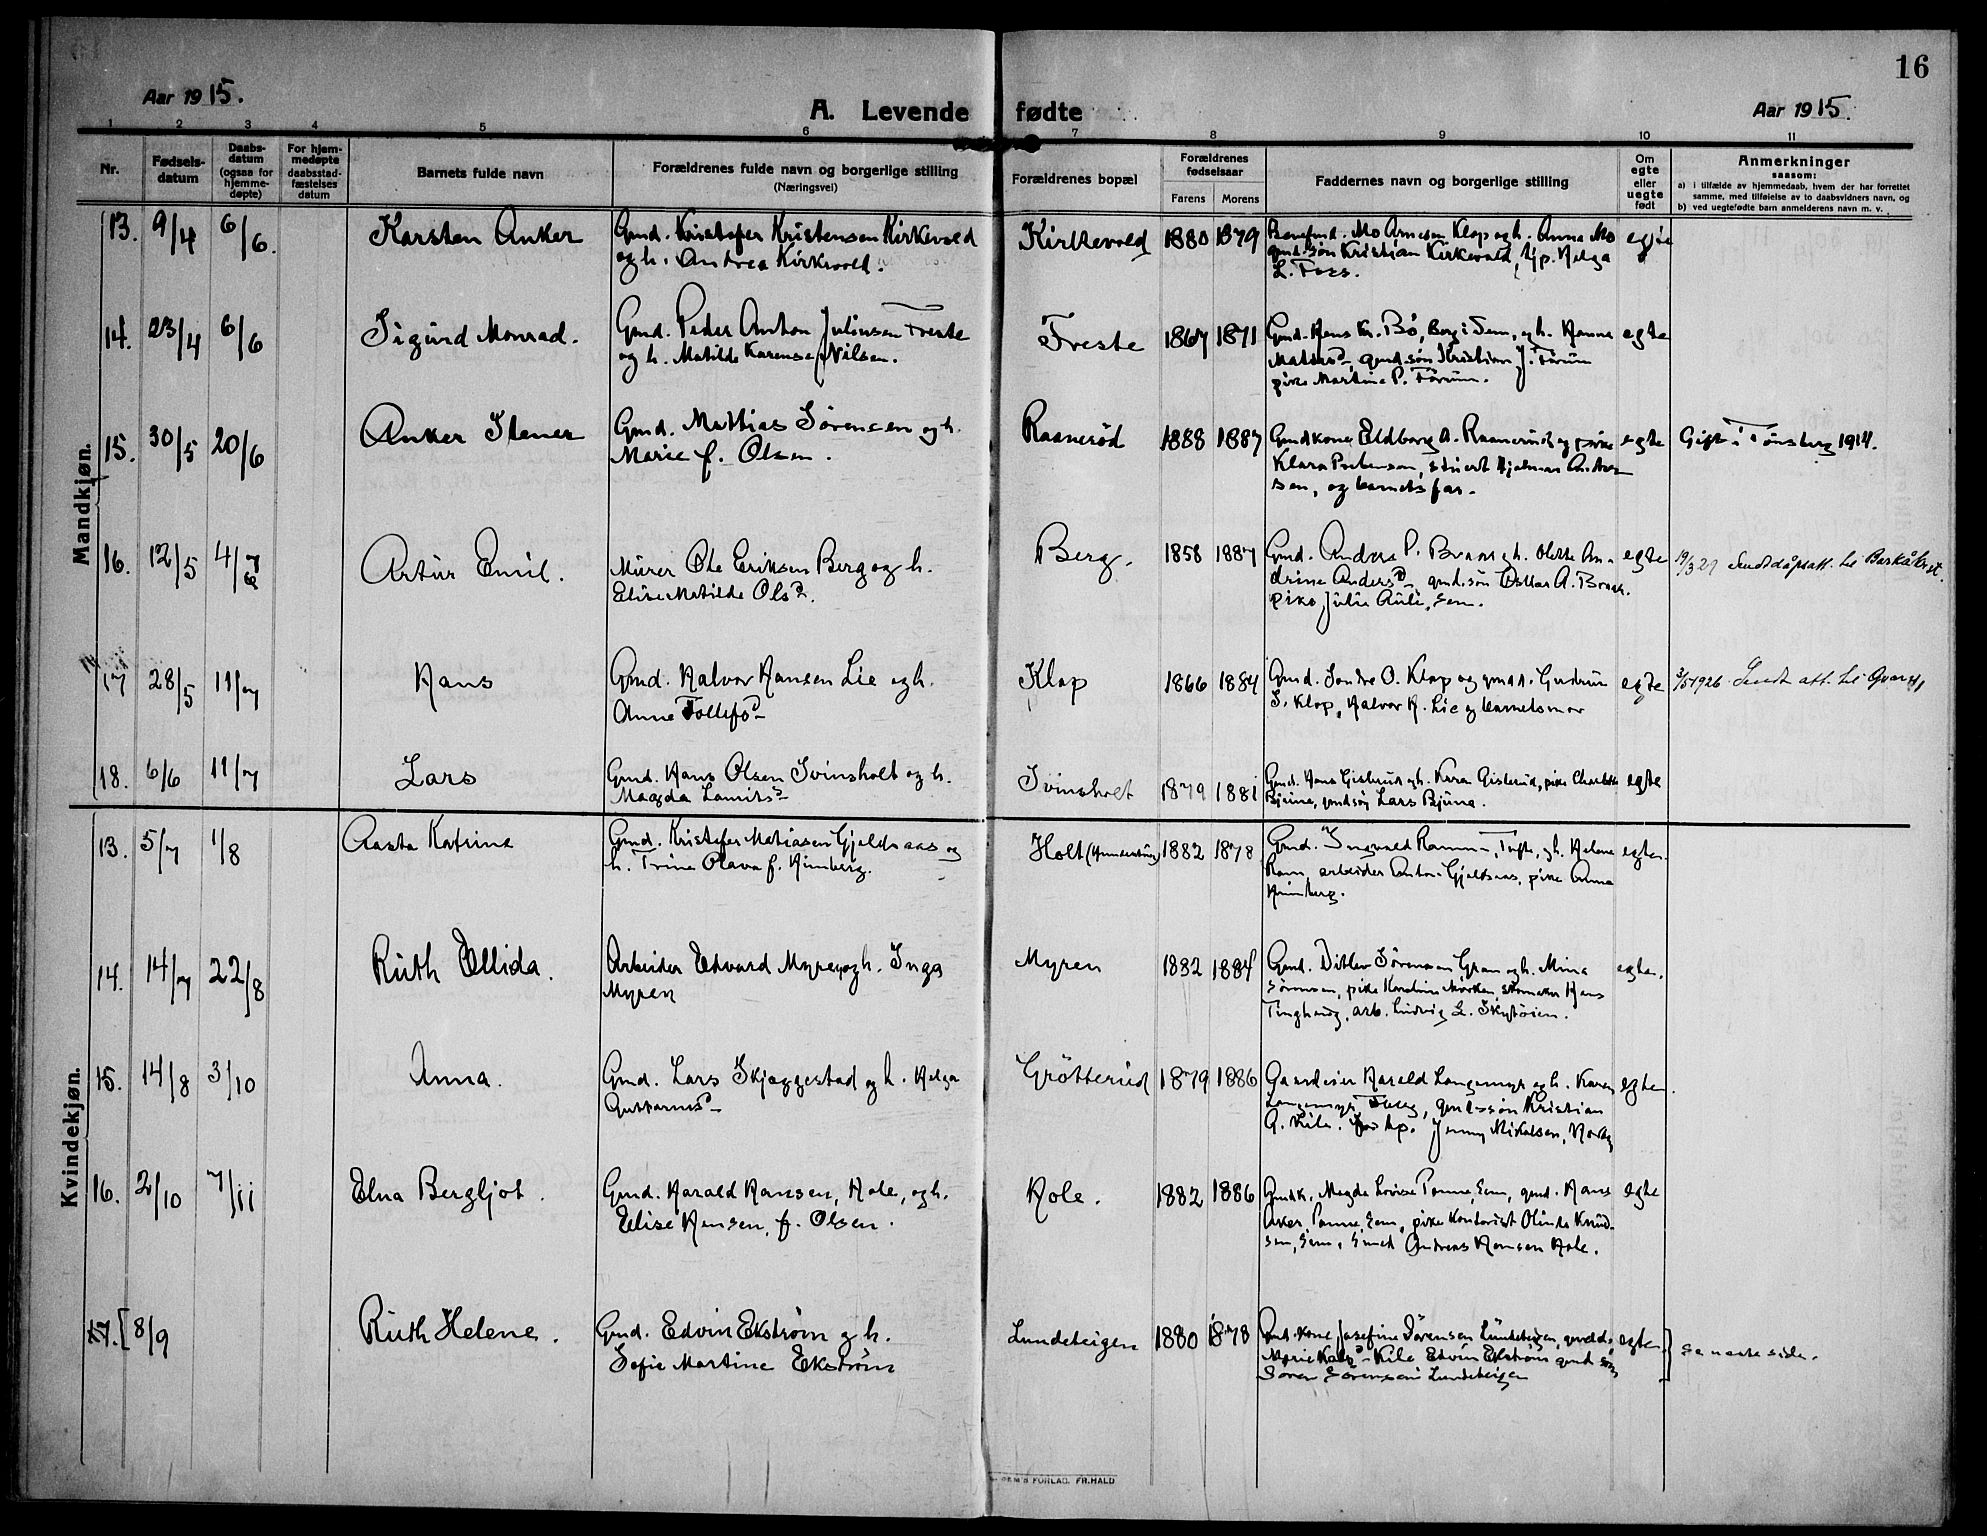 16
Aar 1915.
A. Levende fødte
Aar 1915.
1 2 3 4 5 6 7 8 9 10 11
Nr.
Fødsels-
datum
Daabs-
datum
(ogsaa for
hjemme-
døpte)
For hjem-
medøpte
daabsstad-
fæstelses
datum
Barnets fulde navn
Forældrenes fulde navn og borgerlige stilling
(Næringsvei)
Forældrenes bopæl
Forældrenes
fødselsaar
Farens Morens
Faddernes navn og borgerlige stilling
Om
egte
eller
uegte
født
Anmerkninger
saasom:
a) i tilfælde av hjemmedaab, hvem der har forrettet
samme, med tilføielse av to daabsvidners navn, og
b) ved uegtefødte barn anmelderens navn m. v.
Mandkjøn.
13. 9/4 6/6. Karsten Anker
Gmd. Kristofer Kristensen Kirkevold
og h. Andrea Kirkevold.
Kirkevold 1880 1879
Mo Arnesen Klop og h. Anna Mo
gmd.søn Kristian Kirkevold, Helga
L. Foss.
egte
14. 23/4 6/6 Sigurd Monrad.
Gmd. Peder Anton Julinsen Freste
og h. Matilde Karense Nilsen.
Freste 1867 1871
Gmd. Hans Kr. Bö, Berg i Sem, og h. Hanna
gmd.søn Kristian J. Förum
pike Martine P. Förum.
egte
15. 30/5 20/6 Anker Stener
Gmd. Mattias Sörensen og h.
Marie f. Olsen.
Raanerød 1888 1887
Gmdkone Eldborg A. og pike
Klara Pedersen, Hjalmar Andrea
sen, og barnets far.
egte Gift i Tønsberg 1914.
16. 12/5 4/7 Artur Emil.
Murer Ole Eriksen Berg og h.
Elise Matilde Olsd.
Berg. 1858 1887
Gmd. Anders P. og h. Olette An-
drine Andersd. gmd.søn Oskar A.
pike Julie Auli, Sem.
egte 19/3 27 Sendt dåpsatt. til
17 28/5 11/7 Hans
Gmd. Halvor Hansen Lie og h.
Anne Tollefsd
Klop 1866 1884
Gmd. Sondre O. Klop og Gudrun
S. Klop, Halvor H. Lie og barnets mor
egte 3/5 1926 Sendt att. til
18. 6/6 11/7 Lars
Gmd. Hans Olsen Svinsholt og h.
Magda
Svinsholt 1879 1881
Gmd. Hans og h. Karen pike Charlotte
Bjune, gmdsøn Lars Bjune.
egte
Kvindekjøn.
13. 5/7 1/8 Aasta Katrine
Gmd. Kristofer Matiasen Gjeldsaas og
h. Trine Olava f. Himberg.
Holt 1882 1878
Gmd. Ingvald Ramm Tufte, og h. Helene
Ram, arbeider Anton Gjeldsaas, pike Anna
Himberg.
egte.
14. 14/7 22/8 Ruth Ellida.
Arbeider Edvard Myren og h. Inga
Myren
Myren 1882 1884
Gmd. Ditlev Sörensen Gran og h. Mina
Sörensen, pike Karoline skomaker Hans
Tinghaug, arb. Ludvig L.
egte.
15. 14/8 3/10 Anna.
Gmd. Lars Skjaggestad og h. Helga
Grötterud 1879 1886
Gaardeier Harald Langemyr og h. Karen
Langemyr gmdssøn Kristian
A. Kile. Jenny Mikalsen,
egte
16. 2/10 7/11 Elna Bergljot.
Gmd. Harald Hansen, Hole, og h.
Elise Hansen, f. Olsen.
Hole. 1882 1886
Gmdk. Magda Lovise Sem, gmd. Hans
Sem, pike kontorist Olinda Knud-
sen, Sem, Smed Andreas Hansen Hole.
egte
17. [8/9 Ruth Helene.
Gmd. Edvin Ekstrøm og h.
Sofie Martine Ekstrøm
Lundeteigen 1880 1878
Gmd.kone Josefine Sörensen Lundeteigen,
Marie Kile Edvin Ekstrøm gmd søn
Sören Sörensen Lundeteigen
egte.] se neste side.
FORLAG. FR.HALD